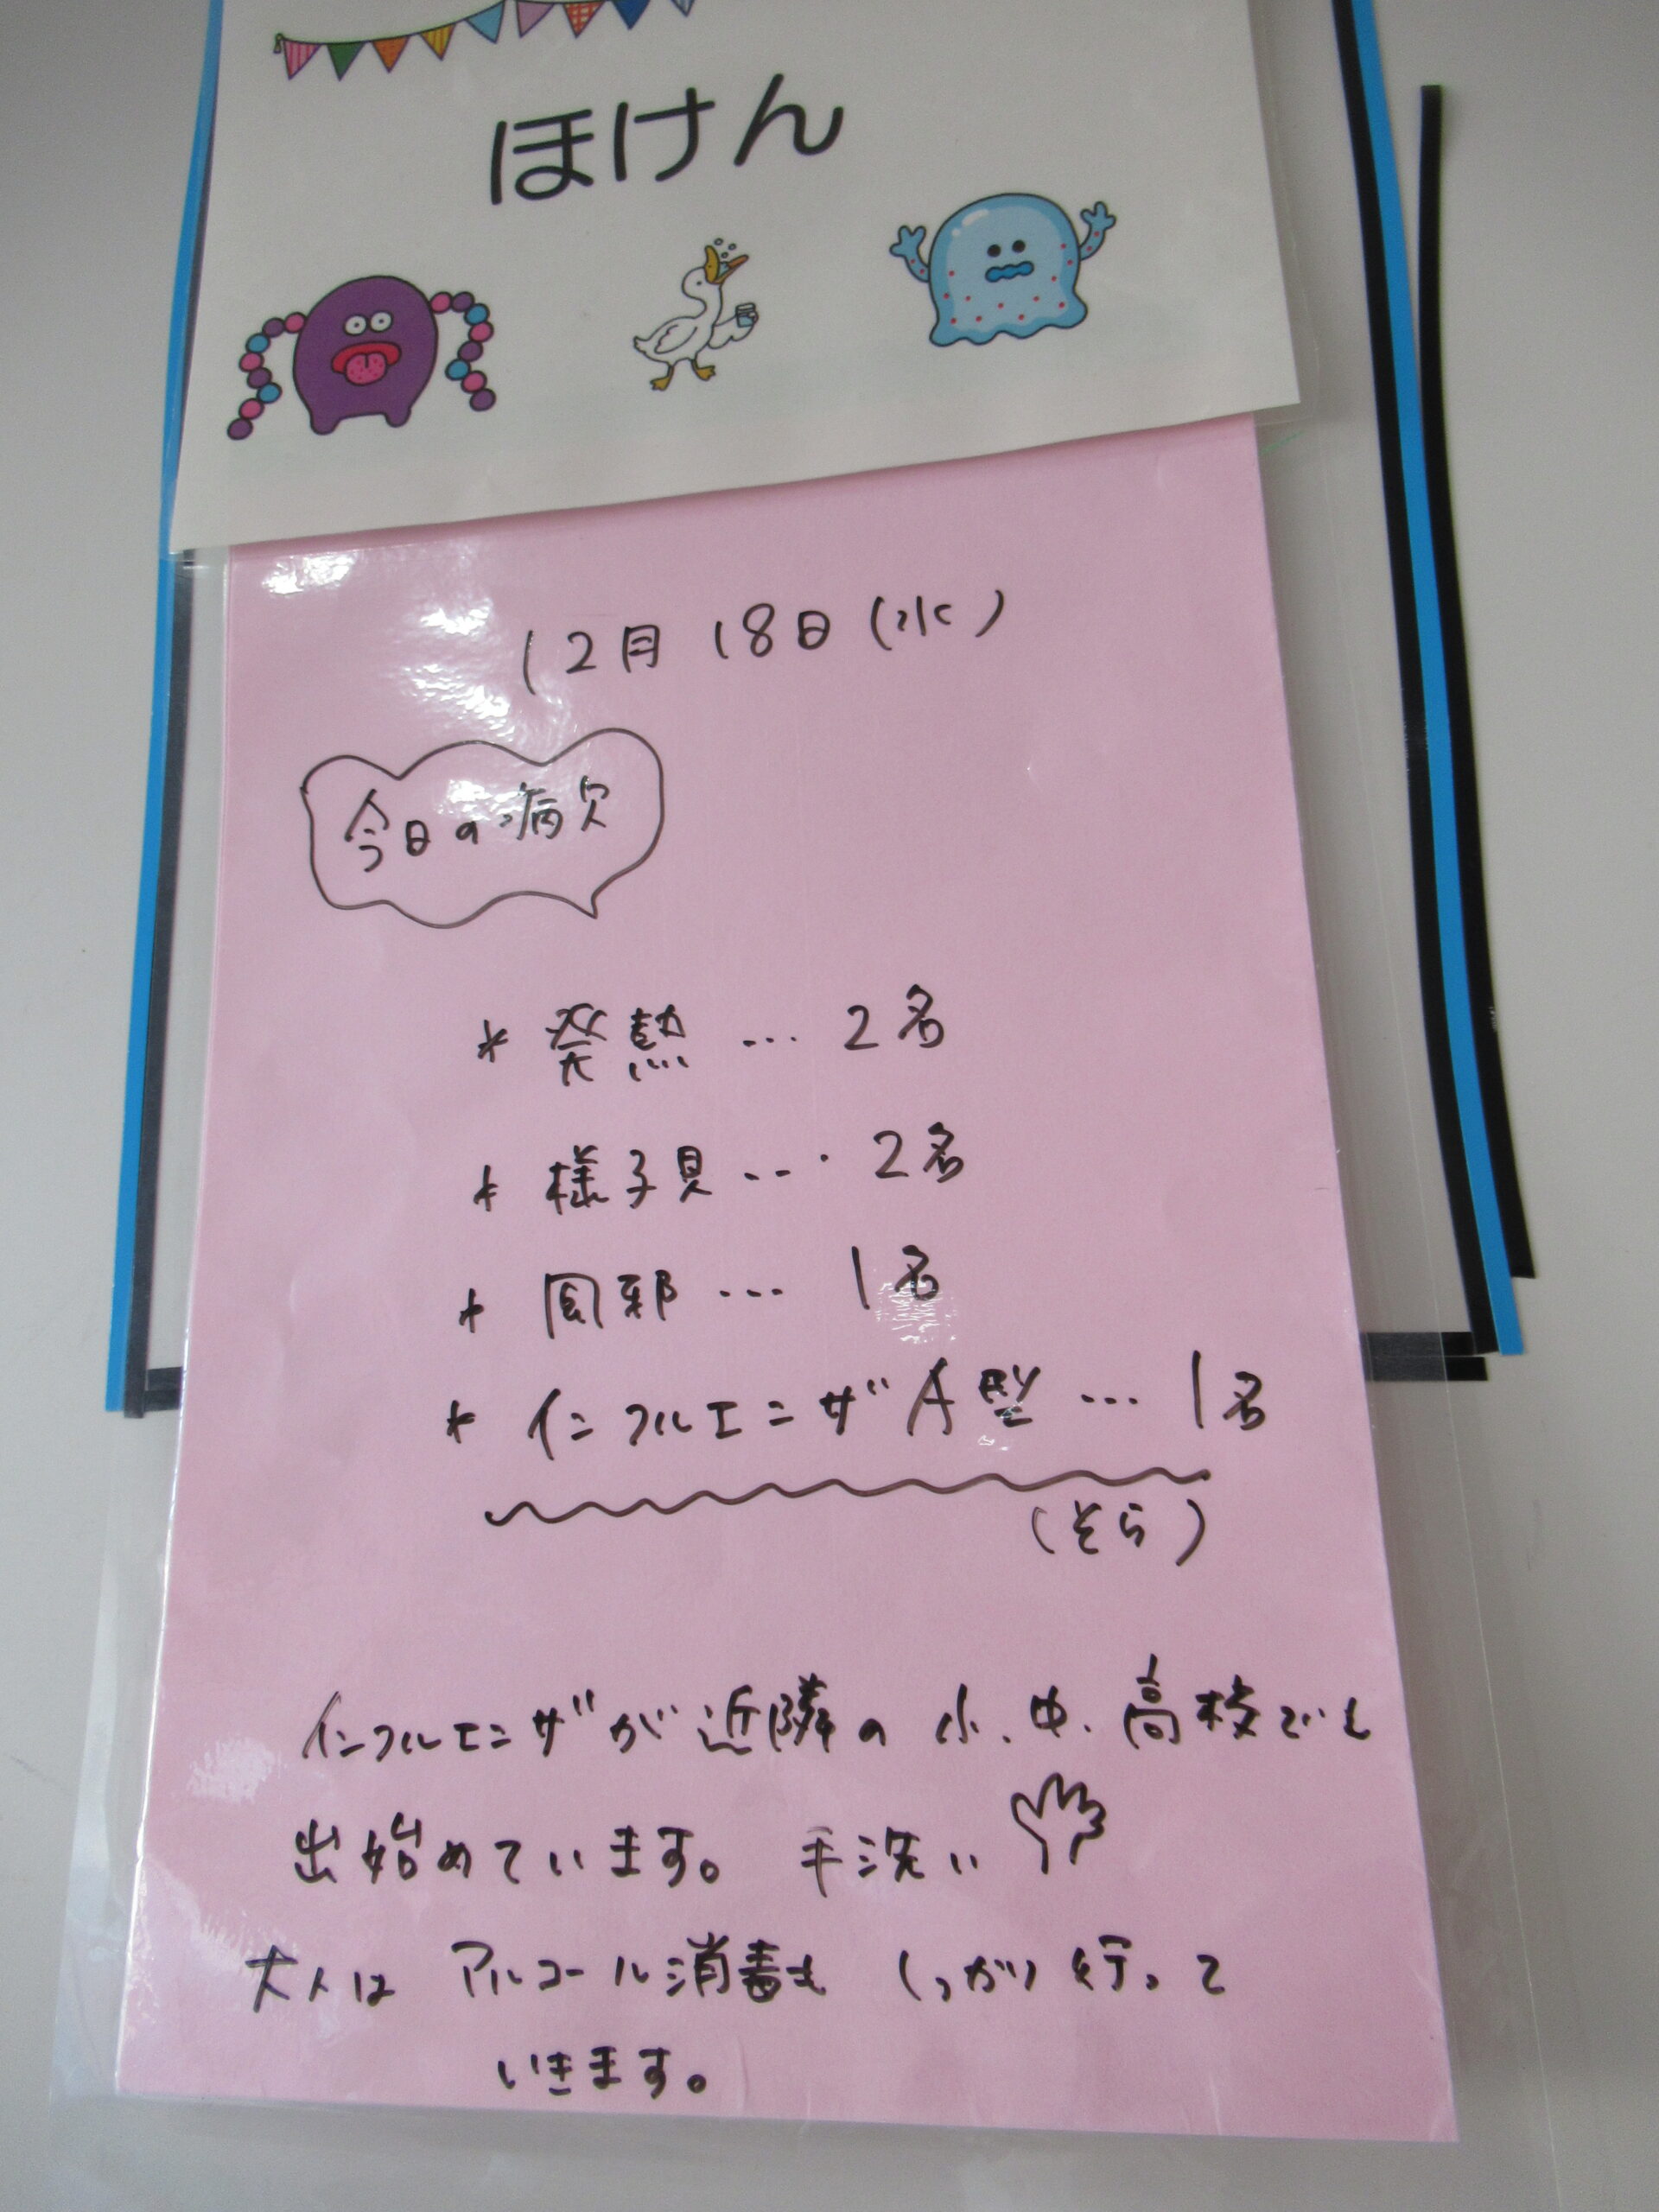 ほけん
12月18日(水)
今日の病欠
* 発熱 … 2名
* 様子見 … 2名
* 風邪 … 1名
* インフルエンザA型 … 1名
(そら)
インフルエンザが近隣の小、中、高校でも
出始めています。 手洗い
大人は アルコール消毒も しっかり行って
いきます。